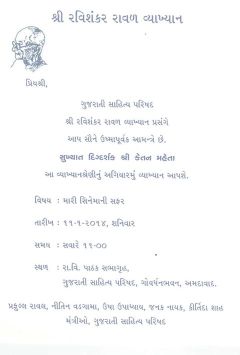 શ્રી રવિશંકર રાવળ વ્યાખ્યાન
પ્રિયશ્રી,
ગુજરાતી સાહિત્ય પરિષદ
શ્રી રવિશંકર રાવળ વ્યાખ્યાન પ્રસંગે
આપ સૌને ઉષ્માપૂર્વક આમન્ત્રે છે.
સુખ્યાત દિગ્દર્શક શ્રી કેતન મહેતા
આ વ્યાખ્યાનશ્રેણીનું અગિયારમું વ્યાખ્યાન આપશે.
વિષય : મારી સિનેમાની સફર
તારીખ : ૧૧-૧-૨૦૧૪, શનિવાર
સમય : સવારે ૧૬-૦૦
સ્થળ : રા.વિ. પાઠક સભાગૃહ,
ગુજરાતી સાહિત્ય પરિષદ, ગોવર્ધનભવન, અમદાવાદ.
પ્રફુલ્લ રાવલ, નીતિન વડગામા, ઉષા ઉપાધ્યાય, જનક નાયક, કીર્તિદા શાહ
મંત્રીઓ, ગુજરાતી સાહિત્ય પરિષદ